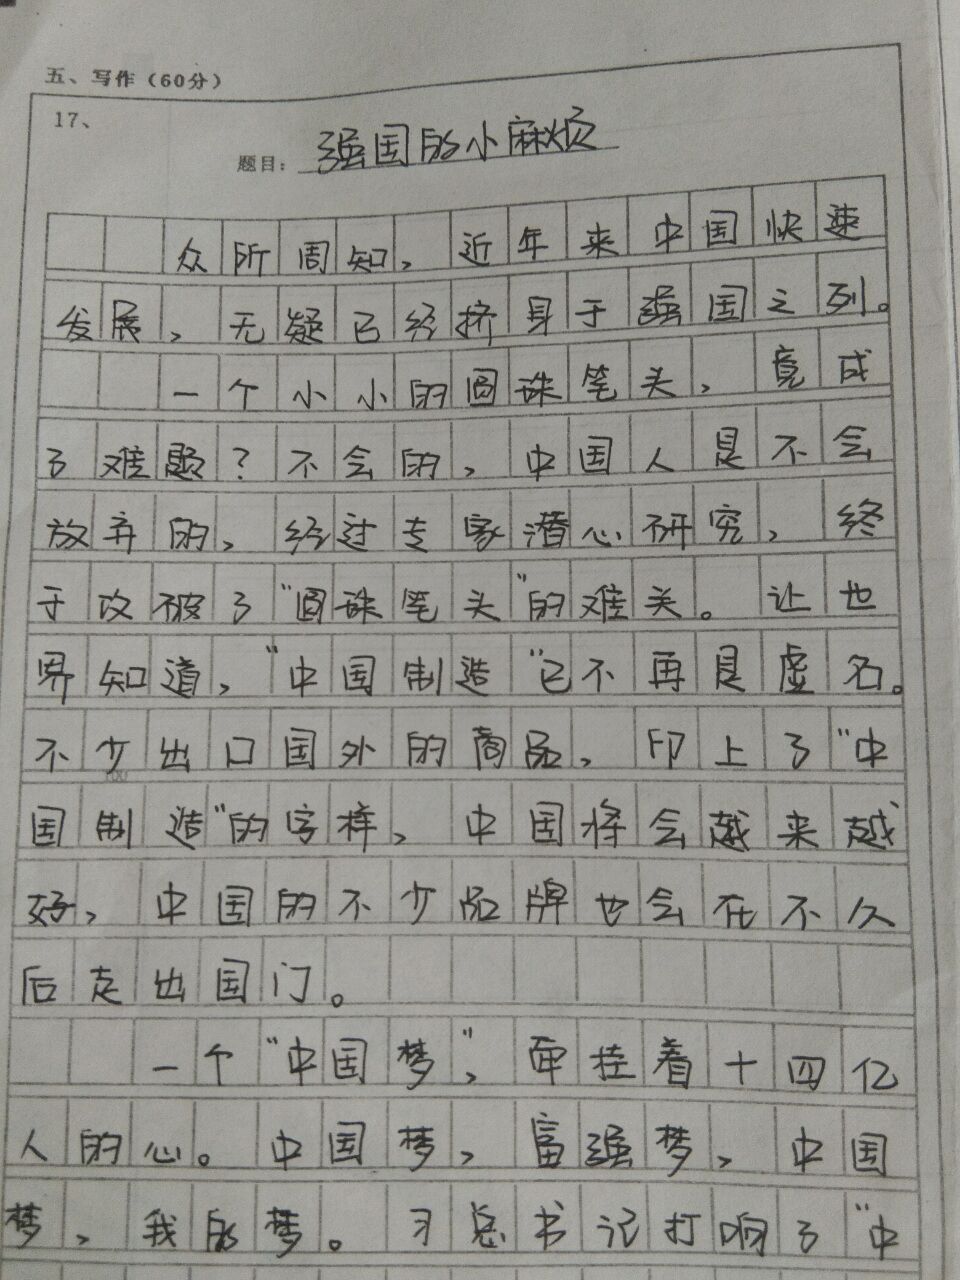 五、写作（60分）
17、
题目：强国的小麻烦
众所周知，近年来中国快速
发展，无疑已经挤身于强国之列。
一个小小的圆珠笔头，竟成
了难题？不会的，中国人是不会
放弃的，经过专家潜心研究，终
于攻破了“圆珠笔头”的难关。让世
界知道，“中国制造”已不再是虚名。
不少出口国外的商品，印上了“中
国制造”的字样，中国将会越来越
好，中国的不少品牌也会在不久
后走出国门。
一个“中国梦”，牵挂着十四亿
人的心。中国梦，富强梦，中国
梦，我的梦。习总书记打响了“中